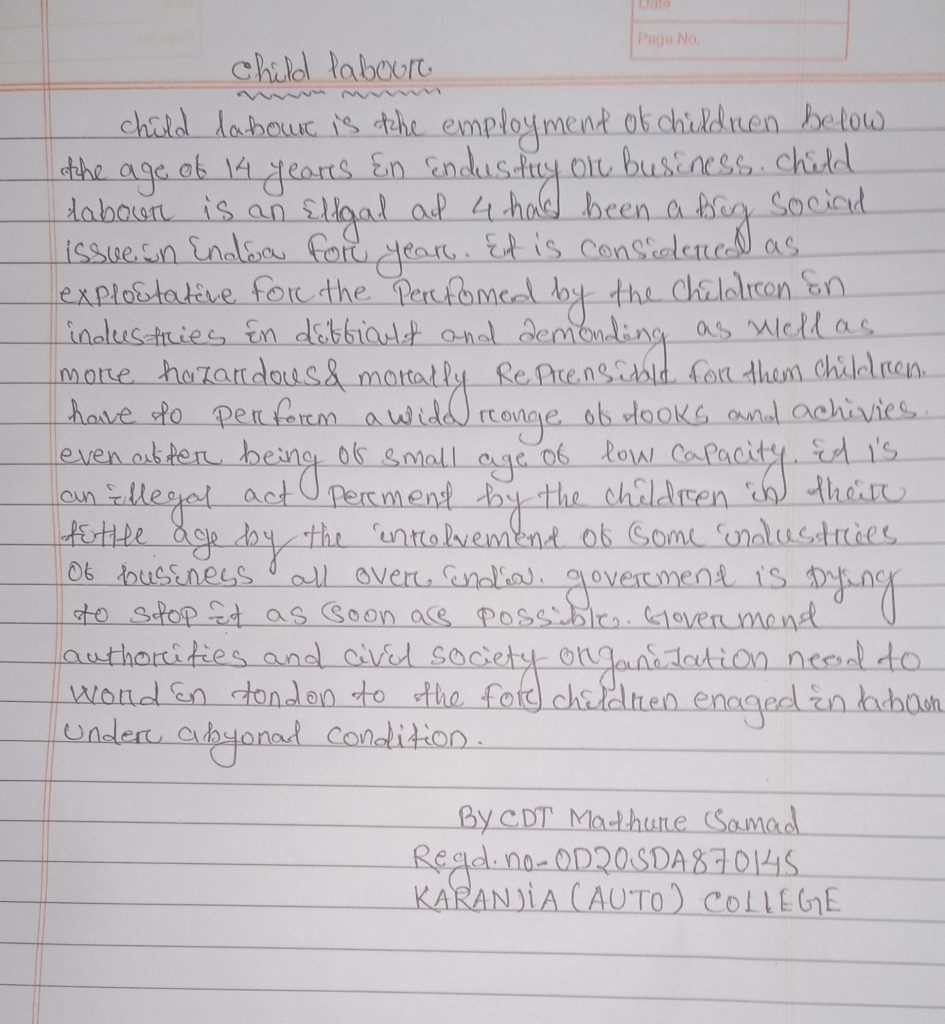 Date
Page No.
child labour
child labour is the employment of children below
the age of 14 years in industry or business. child
labour is an illgal at 4 had been a big social
issue in India for year. it is considered as
exploitative for the Perfomed by the children in
industries in difficult and demonding as well as
more hazardous & morally Reprensible for them children
have to perform a wide ronge of tooks and achivies
even after being of small age of low capacity. it is
an illegal act perment by the children in their
little age by the involvement of some industries
of business all over india. goverment is trying
to stop it as soon as possible. Goverment
authorities and civil society organization need to
word in tondon to the for children enaged in labour
under abyonal condition.
BY CDT Mathure Samad
Regd. no- OD20SDA870145
KARANJIA (AUTO) COLLEGE